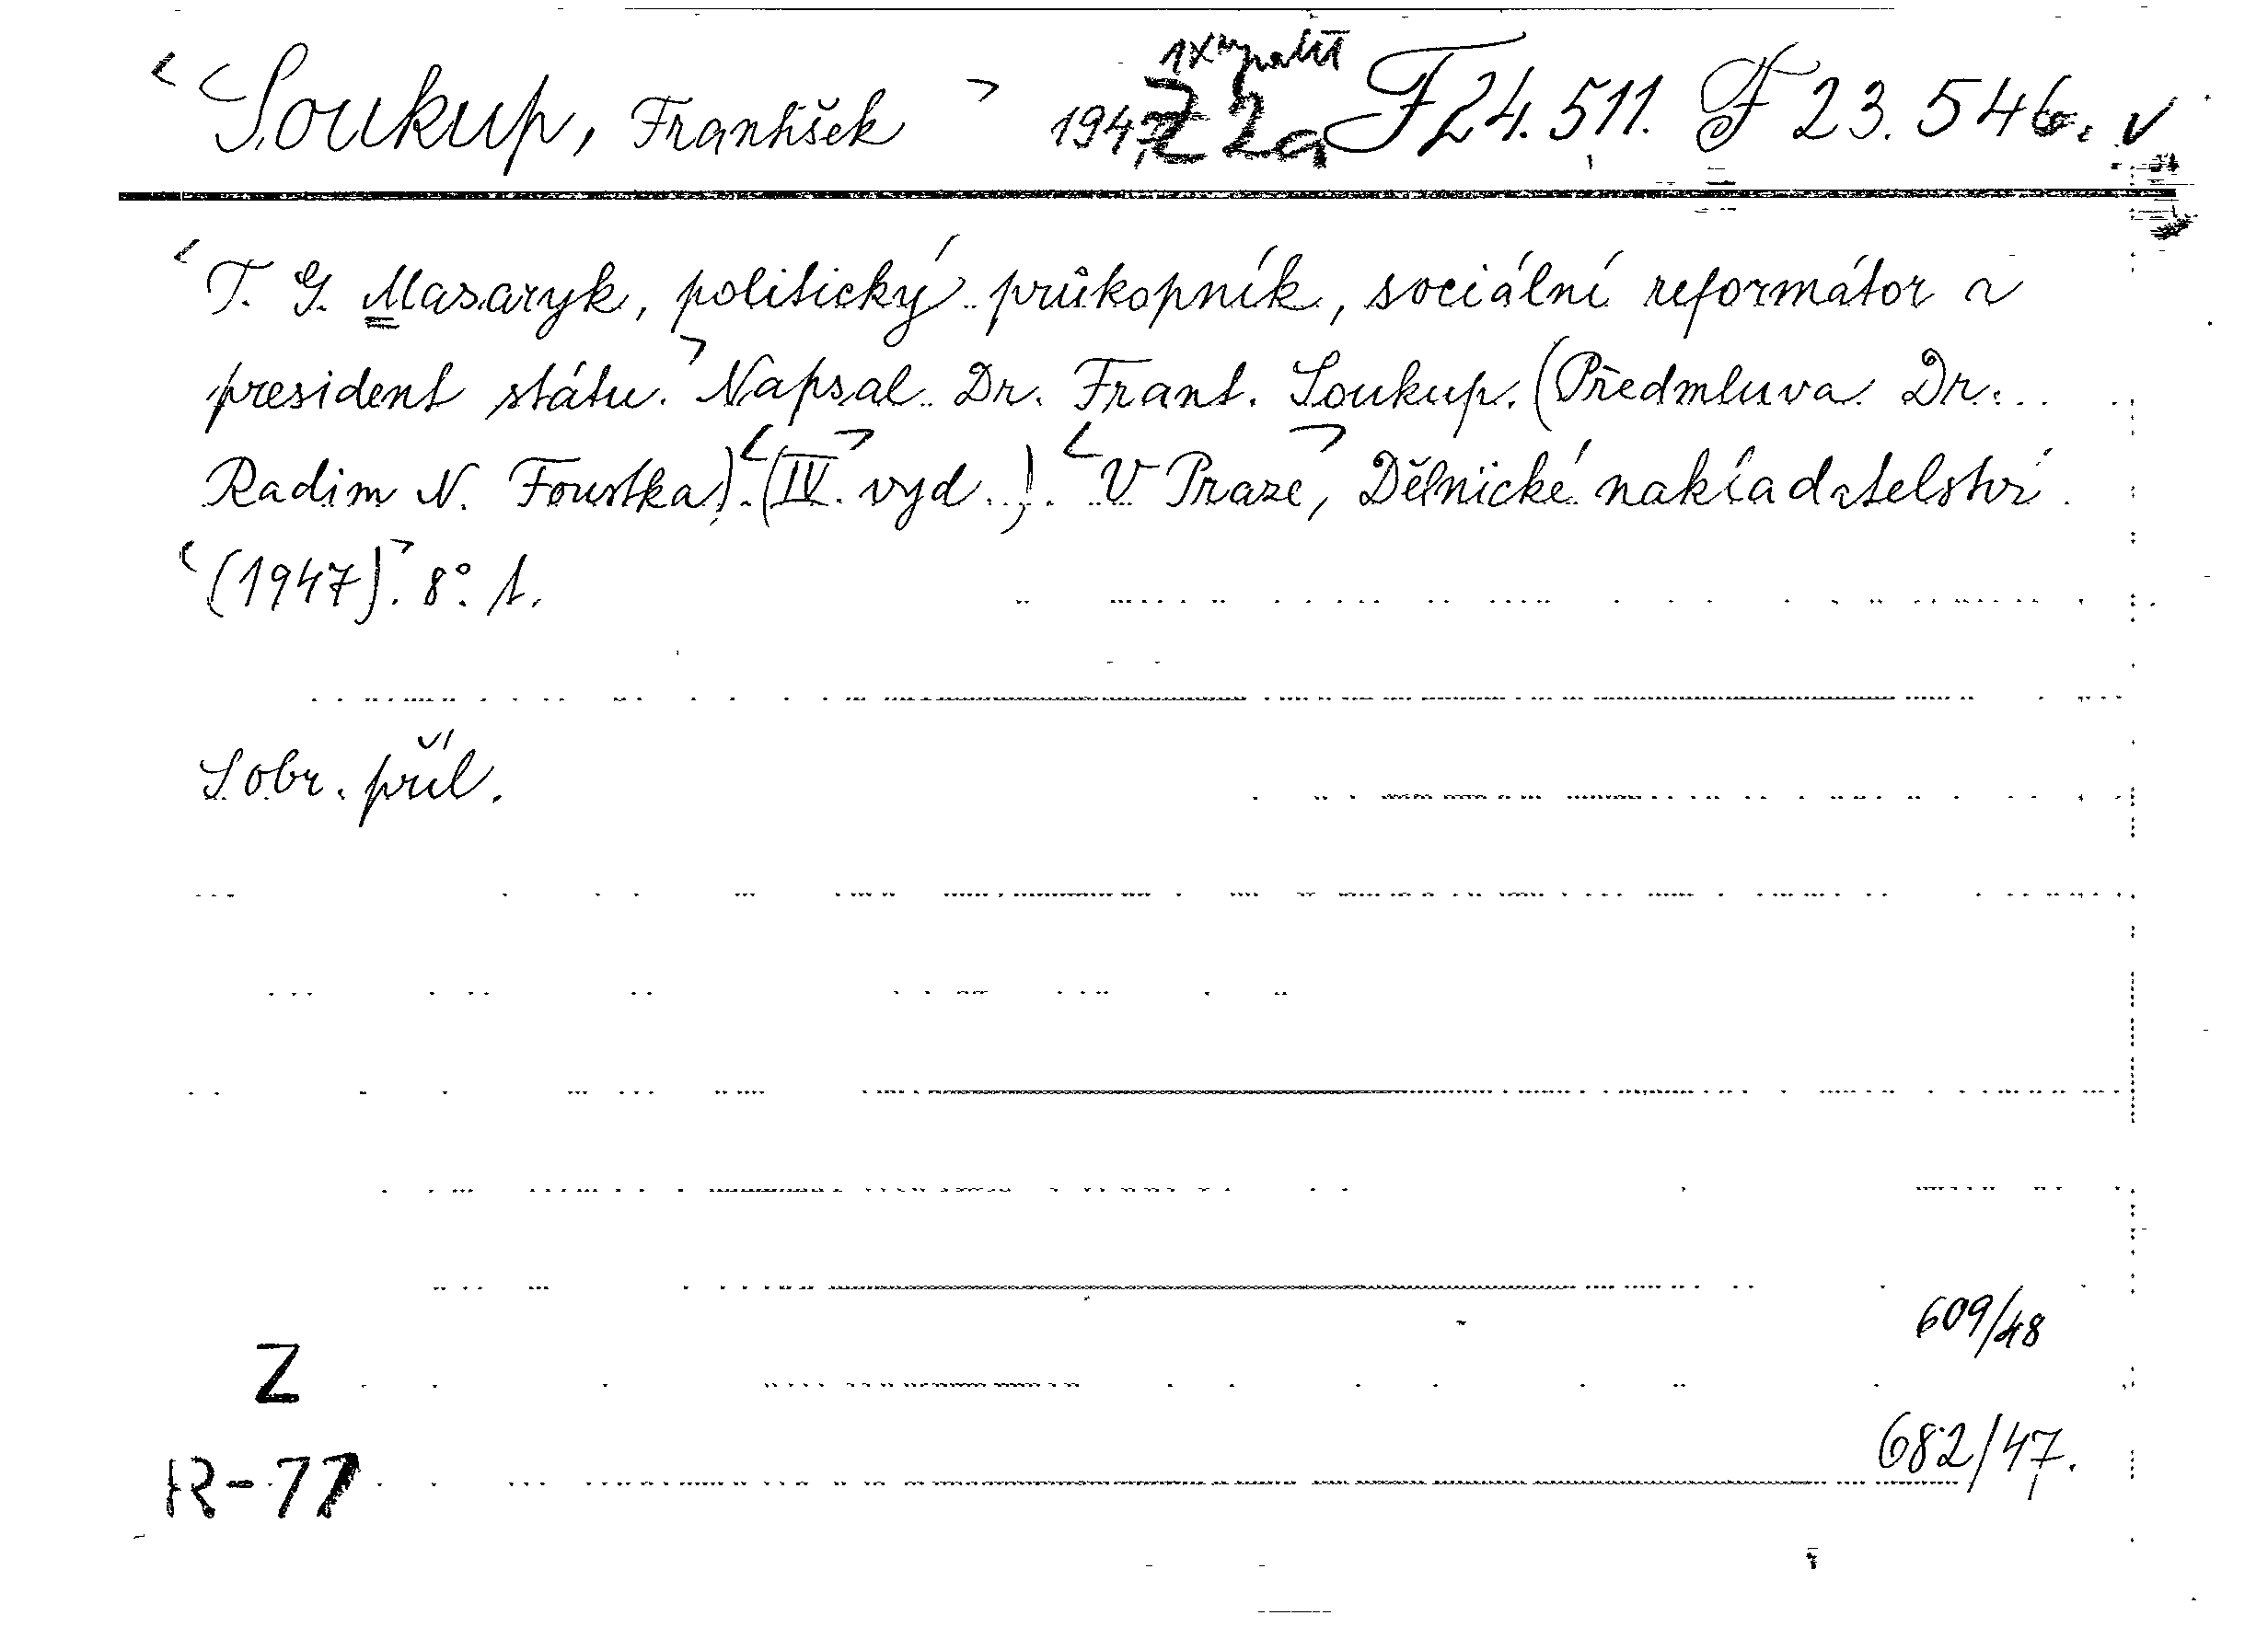 Soukup, František 1947. Z 2a F 24.511. F 23.546. v
T. G. Masaryk, politický průkopník, sociální reformátor a
president státu. Napsal Dr. Frant. Soukup. (Předmluva Dr.
Radim N. Foustka). (IV. vyd.). V Praze, Dělnické nakladatelství
(1947). 8°. 1.
S obr. příl.
609/48
Z
682/47.
R-77